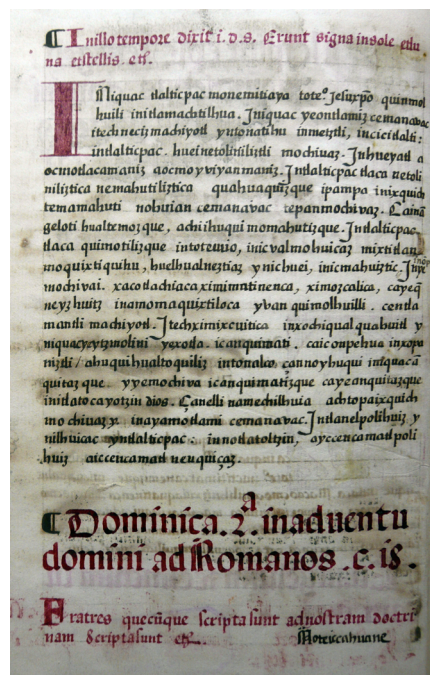 ¶ In illo tempore dixit i. d. s. Erunt signa in sole et lu
na et stellis. etc.
INiquac tlalticpac monemitiaya toteº. Jesuxpo quinmol
huili initlamachtilhua. Iniquac yeontlamiz cemanavac
itech neciz machiyotl yntonatiuh inmetztli, incicitlalti:
intlalticpac. huei netoliniliztli mochivaz. Inhueyatl a
ocmotlacamaniz aocmo yviyanmaniz. Intlalticpactlaca netoli
niliztica nemahutiliztica quahuaquizque ipampa inixquich
temamahuti nohuian cemanavac tepanmochivaz. Ca in a
geloti hualtemozque, achi huqui momahutizque. Intlalticpac
tlaca quimotilizque intotecuio, inic valmohuicaz mixtitlan
moquixtiquihu, huelhualneztiaz yníchuei, inicmahuiztic. Iniquac
mochivai. xacotlachiacaximimatinenca, ximozcalica, cayeq
neyzhuitz inamomaquixtiloca yvan quimolhuilli. centla
mantli machiyotl. Itechximixcuitica inxochiqualquahuitl y
niquac yeytzmolini yexotla. icanquimati. caiconpehua inxopa
niztli / ahuquihualtoquiliz intonalco, çannoyhuqui iniquacan
quitazque yyemochiva icanquimatizque cayeonquiuazque
initlatocayotzin dios. Çanelli namechilhuia achtopaixquich
mochivaz y inayamotlami cemanavac. Intlanelpolihuiz y
nilhuicac yntlalticpac: innotlatoltzin, ayccencamatl poli
huiz aiccencamatl nenquiçaz.
¶ Dominica. 2.ª in aduentu
domini ad Romanos. c. 15.
Fratres quecũque scripta sunt ad nostram doctri
nam scripta sunt etc. Noteiccahuane